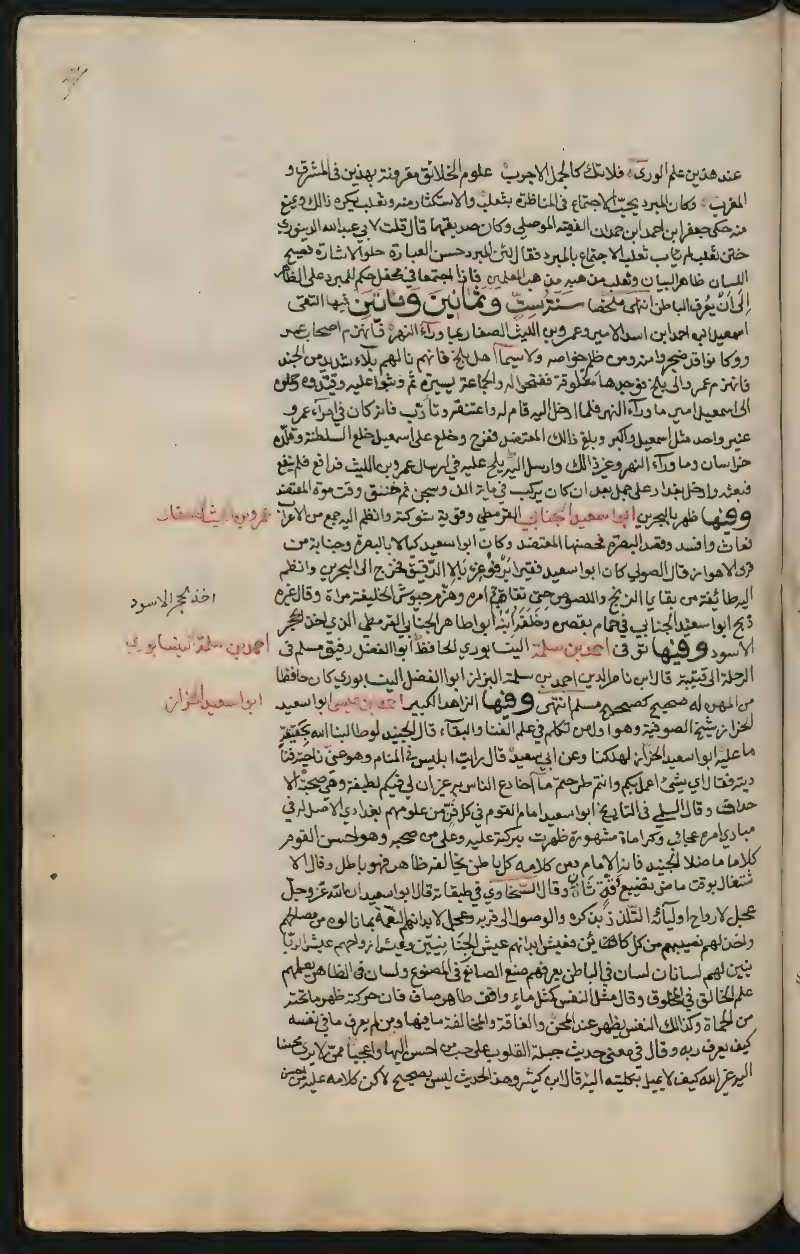 عند هذين علم الورى فلا تك كالجمل الاجرب علوم الخلائق مقرونة بهذين في المشرق و
المغرب وكان المبرد يحب الاجتماع في المناظرة بثعلب والاستكثار منه وثعلب يكره ذالك ويمنع
منه حكى جعفر ابن احمد ابن حمدان الفقيه الموصلي وكان صديقهما قال قلت لابي عبدالله الدينوري
ختن ثعلب لم ياب ثعلب الاجتماع بالمبرد فقال لئن المبرد حسن العبارة حلو الاشارة فصيح
اللسان ظاهر البيان وثعلب مذهبه مذهب المعلمين فاذا اجتمعا في محفل حكم للمبرد على الظاهر
الى ان يعرف الباطن انتهى ملخصا سنة ست وثمانين ومائتين فيها التقى
اسمعيل ابن احمد ابن اسد الامير وعمرو بن الليث الصفار بما ورآء النهر فانهزم اصحاب عمر
ووكانوا قد ضجروا منه ومن ظلم خواصه ولا سيما اهل بلخ فانهم نالهم بلآء شديد من الجند
فانهزم عمرو الى بلخ فوجدها مغلوقة ففتحوا له ولجماعة يسيرة ثم وثبوا عليه وقيدوه وحملوه
الى اسمعيل امير ما ورآء النهر فلما ادخل اليه قام له واعتنقه وتأدب فانه كان في امرآء عمرو
غير واحد مثل اسمعيل واكبر وبلغ ذالك المعتضد ففرح وخلع على اسمعيل خلع السلطنة وقلده
خراسان وما ورآء النهر وغير ذالك وارسل اليه يلح عليه في ارسال عمرو بن الليث فدافع فلم ينفع
فبعثه وادخل بغداد على جمل بعد ان كان يركب في ماية الف وسجن ثم خنق وقت موة المعتضد
وفيها ظهر بالبحرين ابوا سعيد الجنابي القرمطي وقوية شوكته وانظم اليه جمع من الاعراب
فعاث وافسد وقصد البصرة فحصنها المعتضد وكان ابوا سعيد كيالا بالبصرة وجنابة من
قرى الاهواز قال الصولي كان ابوا سعيد فقيرا يرفو غربال الدقيق فخرج الى البحرين وانظم
اليه طائفة من بقايا الزنج واللصوص حتى تفاقم امره وهزم جيوش الخليفة مراة وقال غيره
ذبح ابوا سعيد الجنابي في حمام بقصره وخلفه ابنه ابوا طاهر الجنابي القرمطي الذي اخذ الحجر
الاسود وفيها توفى احمد بن سلمة النيسابوري الحافظ ابوا الفضل رفيق مسلم في
الرحلة الى قتيبة قال ابن ناصر الدين احمد بن سلمة البزار ابوا الفضل النيسابوري كان حافظا
من المهره له صحيح كصحيح مسلم انتهى وفيها الزاهد الكبير احمد بن عيسى ابوا سعيد
الخراز شيخ الصوفية وهو اول من تكلم في علم الفنا والبقآء قال الجنيد لو طالبنا الله بحقيقة
ما عليه ابوا سعيد الخراز لهلكنا وعن ابي سعيد قال رايت ابليس في المنام وهو عني ناحية فنا
ديته فقال اي شئ اعمل بكم وانتم طرحتم ما اخادع الناس به غير ان لي فيكم لطيفة وهي صحبة الا
حداث وقال السلمي في التاريخ ابوا سعيد امام القوم في كل فن من علومهم بغدادي الاصل له في
مبادي امره عجايب وكراماة مشهورة ظهرت بركته عليه وعلى من صحبه وهو احسن القوم
كلاما ما خلا الجنيد فانه الامام ومن كلامه كل باطن يخالفه ظاهر فهو باطل وقال الا
شتغال بوقت ماض تضييع وقت ثان وقال السخاوي في طبقاته قال ابوا سعيد ان الله عز وجل
عجل لارواح اوليآئه التلذذ بذكره والوصول الى قربه وعجل لابدانهم النعمة بما نالوه من مصالحهم
واخذ لهم نصيبهم من كل كائن فعيش ابدانهم عيش الجنانيين وعيش ارواحهم عيش الربا
نيين لهم لسانان لسان في الباطن يعرفهم صنع الصانع في المصنوع ولسان في الظاهر يعلمهم
علم الخالق في المخلوق وقال مثل النفس كمثل ماء واقف طاهر صاف فان حركته ظهر ما تحته
من الحماة وكذالك النفس يظهر عند المحن والفاقة والمخالفة ما فيها ومن لم يعرف ما في نفسه
كيف يعرف ربه وقال في معنى حديث جبلة القلوب على حب من احسن اليها واعجبا ممن لا يرى محسنا
اليه غير الله كيف لا يميل بكليته اليه قال ابن كثير وهذا الحديث ليس بصحيح لاكن كلامه عليه من احسن
عمرو بن الليث الصفار
اخذ الحجر الاسود
احمد بن سلمة النيسابوري
ابوا سعيد الخراز